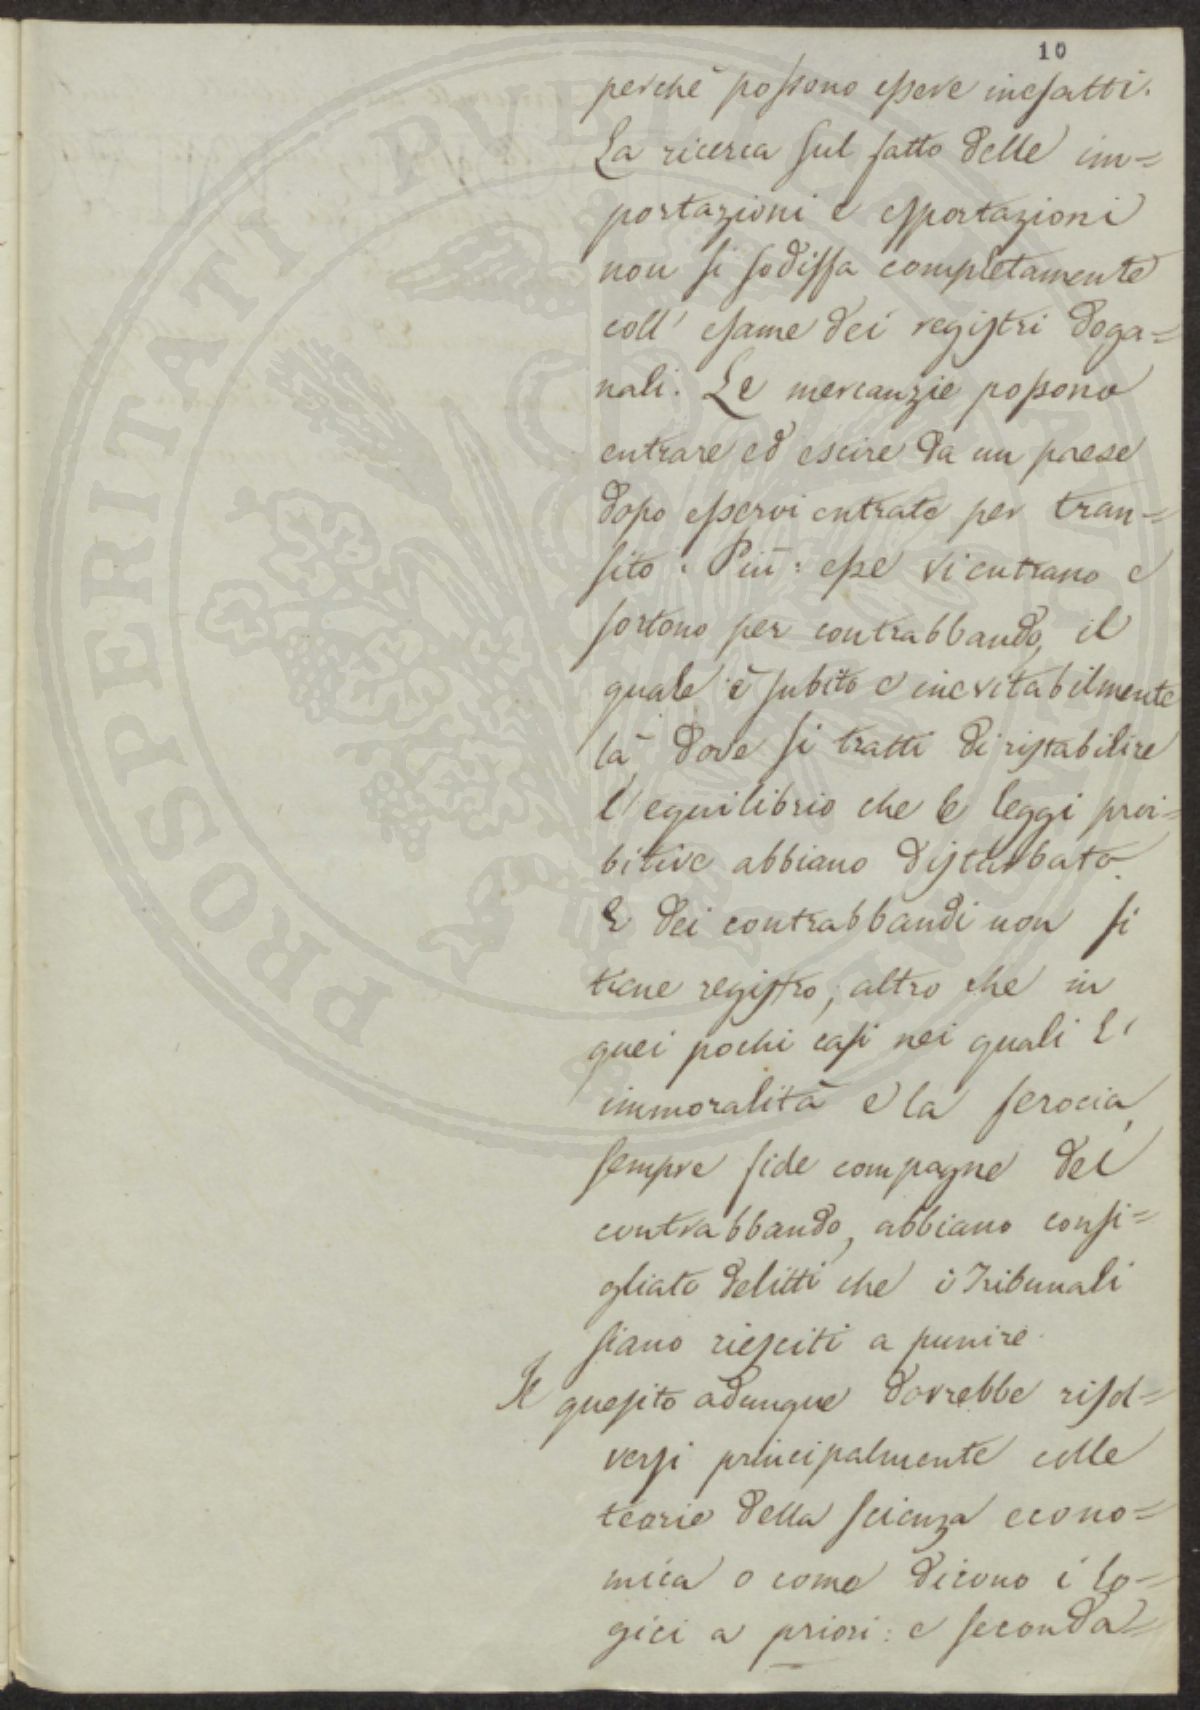 10
perchè possono essere inesatti.
La ricerca sul fatto delle im=
portazioni e esportazioni
non si sodisfa completamente
coll' esame dei registri doga=
nali. Le mercanzie possono
entrare ed escire da un paese
dopo esservi entrate per tran=
sito: Più: esse vi entrano e
sortono per contrabbando, il
quale è subito e inevitabilmente
là dove si tratti di ristabilire
l'equilibrio che le leggi proi=
bitive abbiano disturbato.
E dei contrabbandi non si
tiene registro, altro che in
quei pochi casi nei quali l'
immoralità e la ferocia,
sempre fide compagne del
contrabbando, abbiano consi=
gliato delitti che i Tribunali
siano riesciti a punire.
Il quesito adunque dovrebbe risol=
versi principalmente colle
teorie della scienza econo=
mica o come dicono i lo=
gici a priori: e seconda=
PROSPERITATI PUBLICAE AUGENDAE